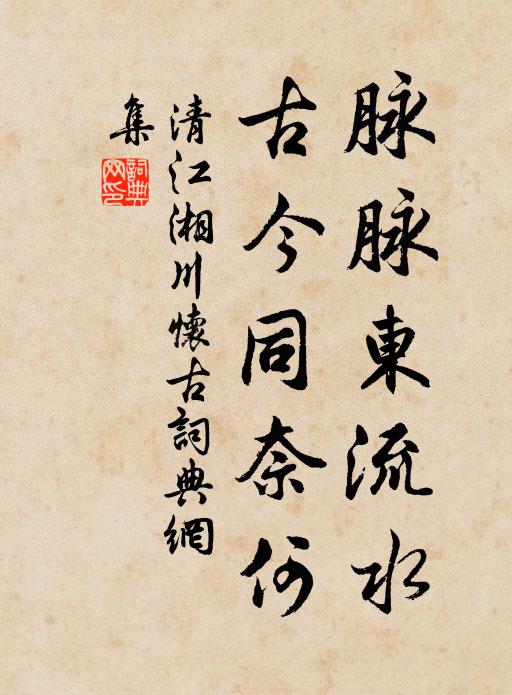 脉脉東流水
古今同奈何
清江湘川懷古詞典網
集
詞典網印